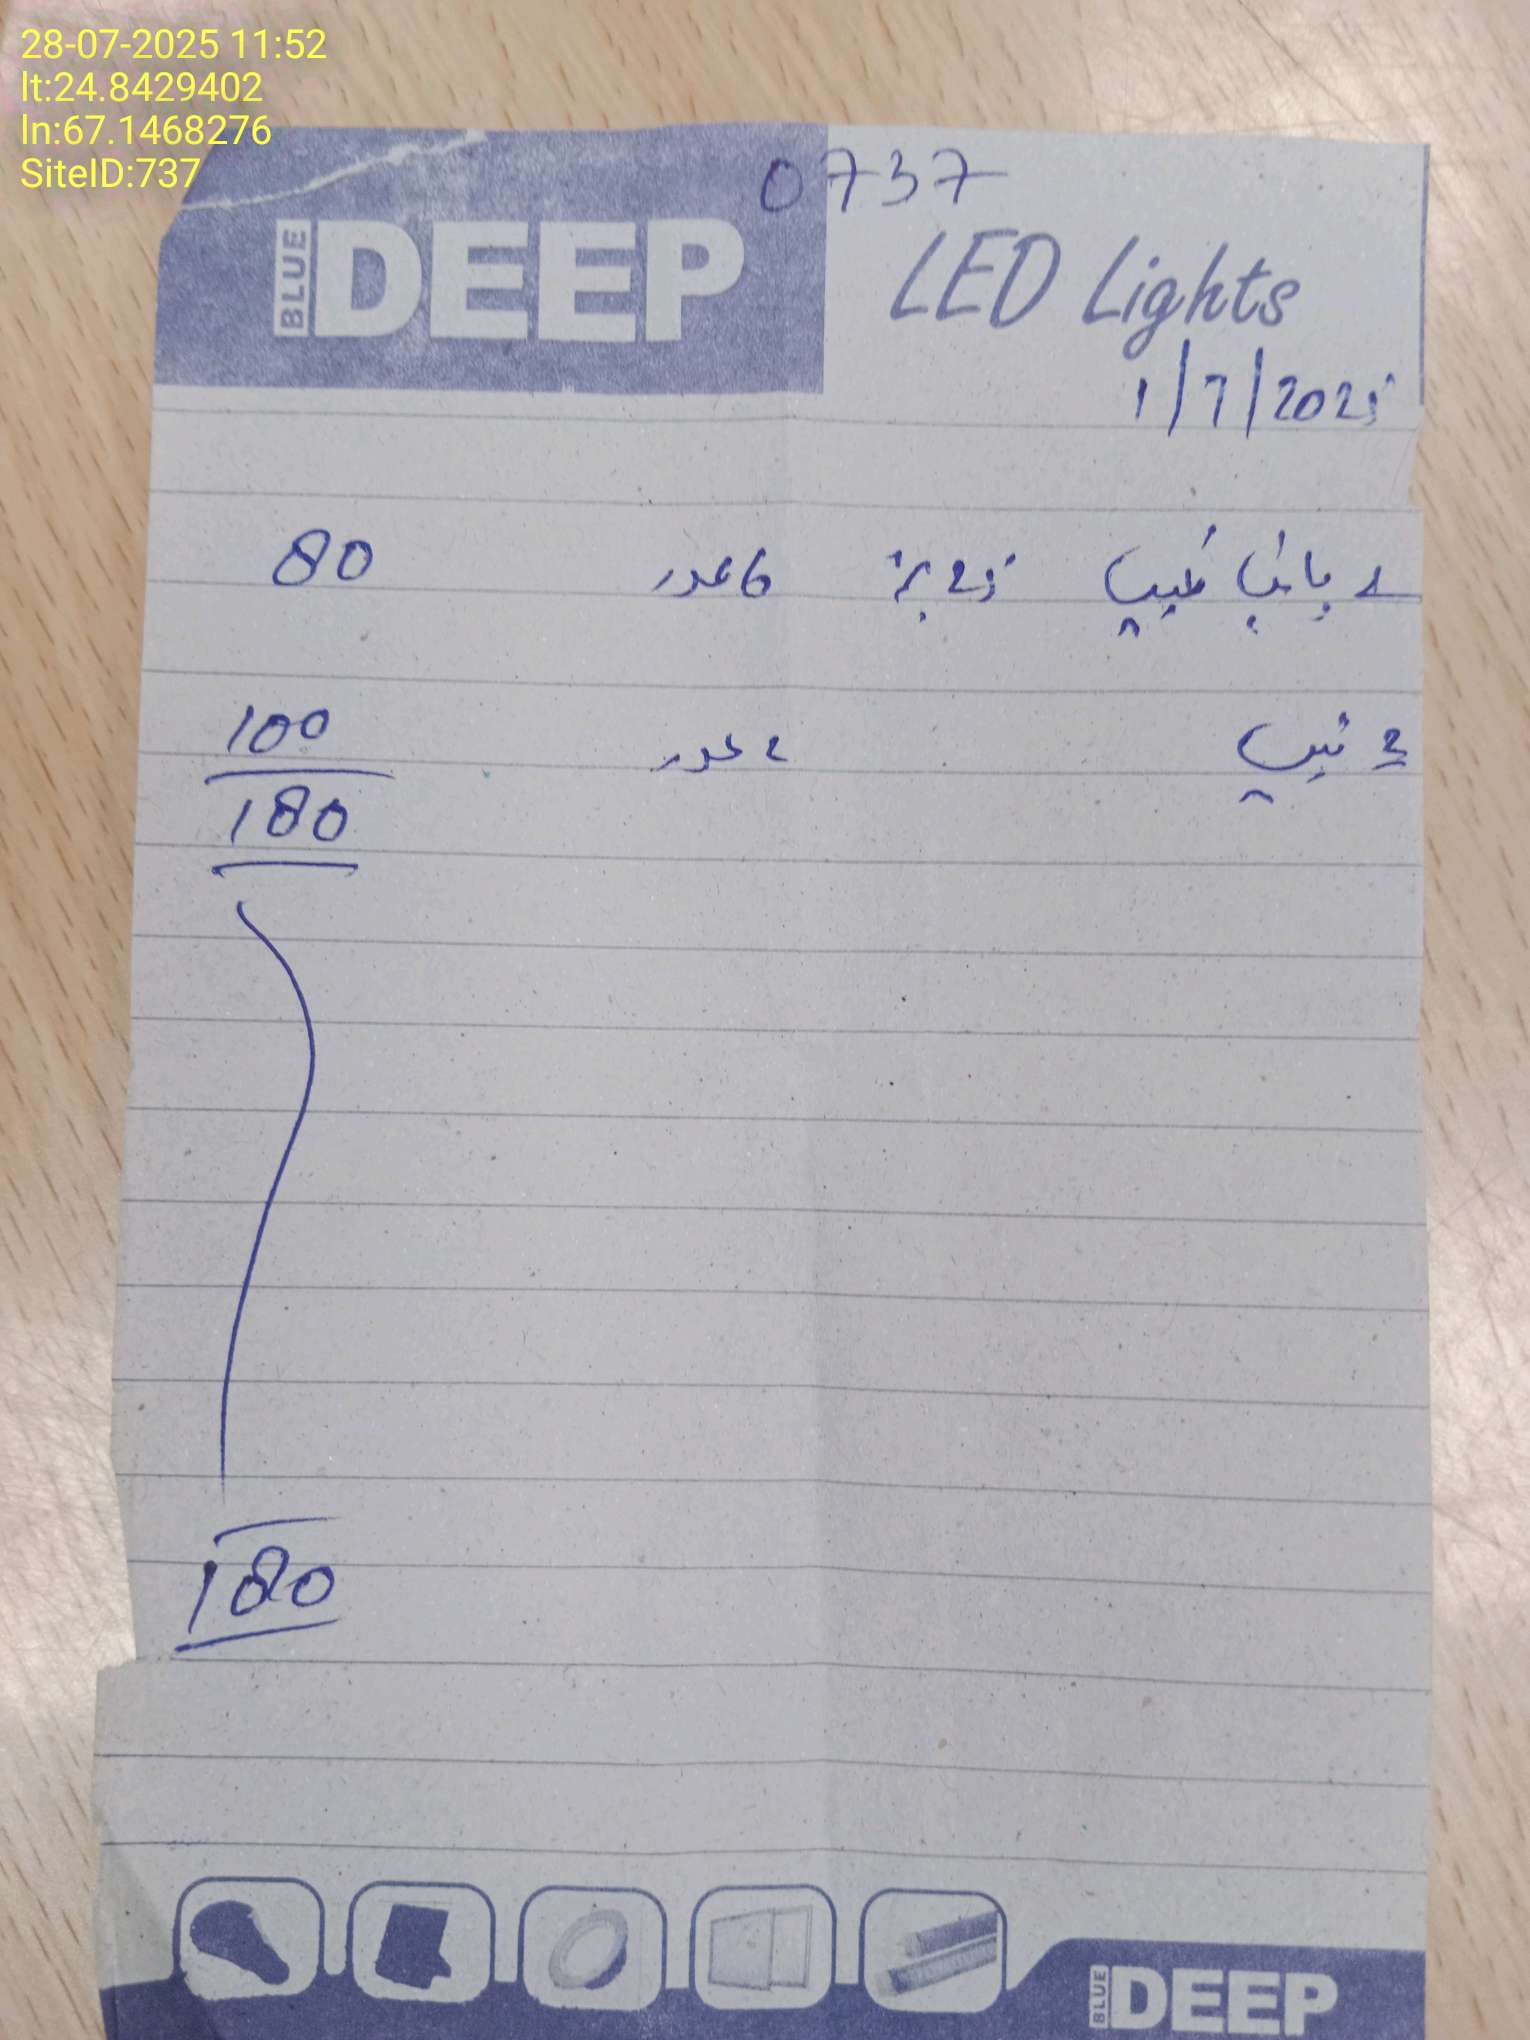 28-07-2025 11:52
lt:24.8429402
ln:67.1468276
SiteID:737
0737
BLUE DEEP LED Lights
1/7/2025
6 عدد 80
2 ٹیپ 2 عدد 100
180
180
BLUE DEEP